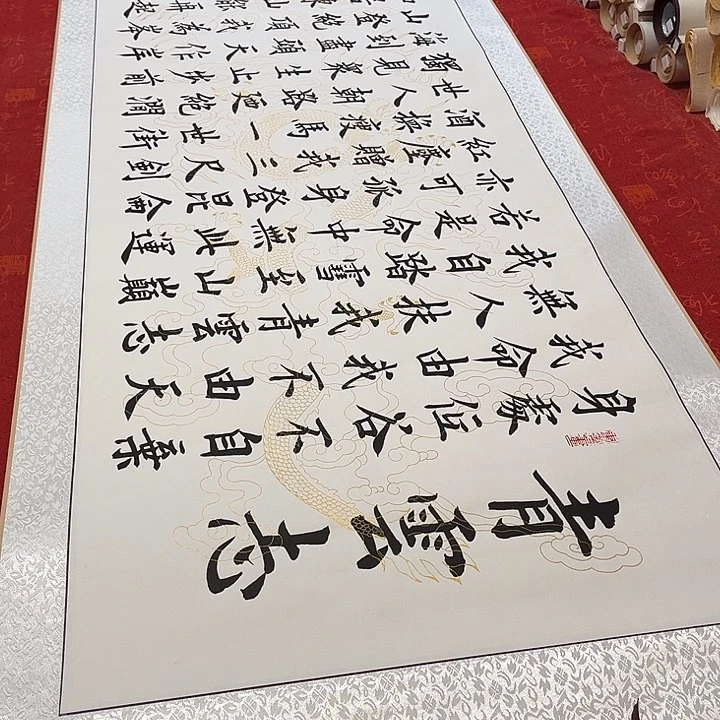 青雲志
身處位谷不自棄
我命由我不由天
無人扶我青雲志
我自踏雪至山巔
若是命中無此運
亦可孤身登昆侖
紅塵贈我三尺劍
酒樸瘦馬一世街
世人朝路絕澗
獨見眾生止步前
海到盡頭天作岸
山登絕頂我為峯
東山再起